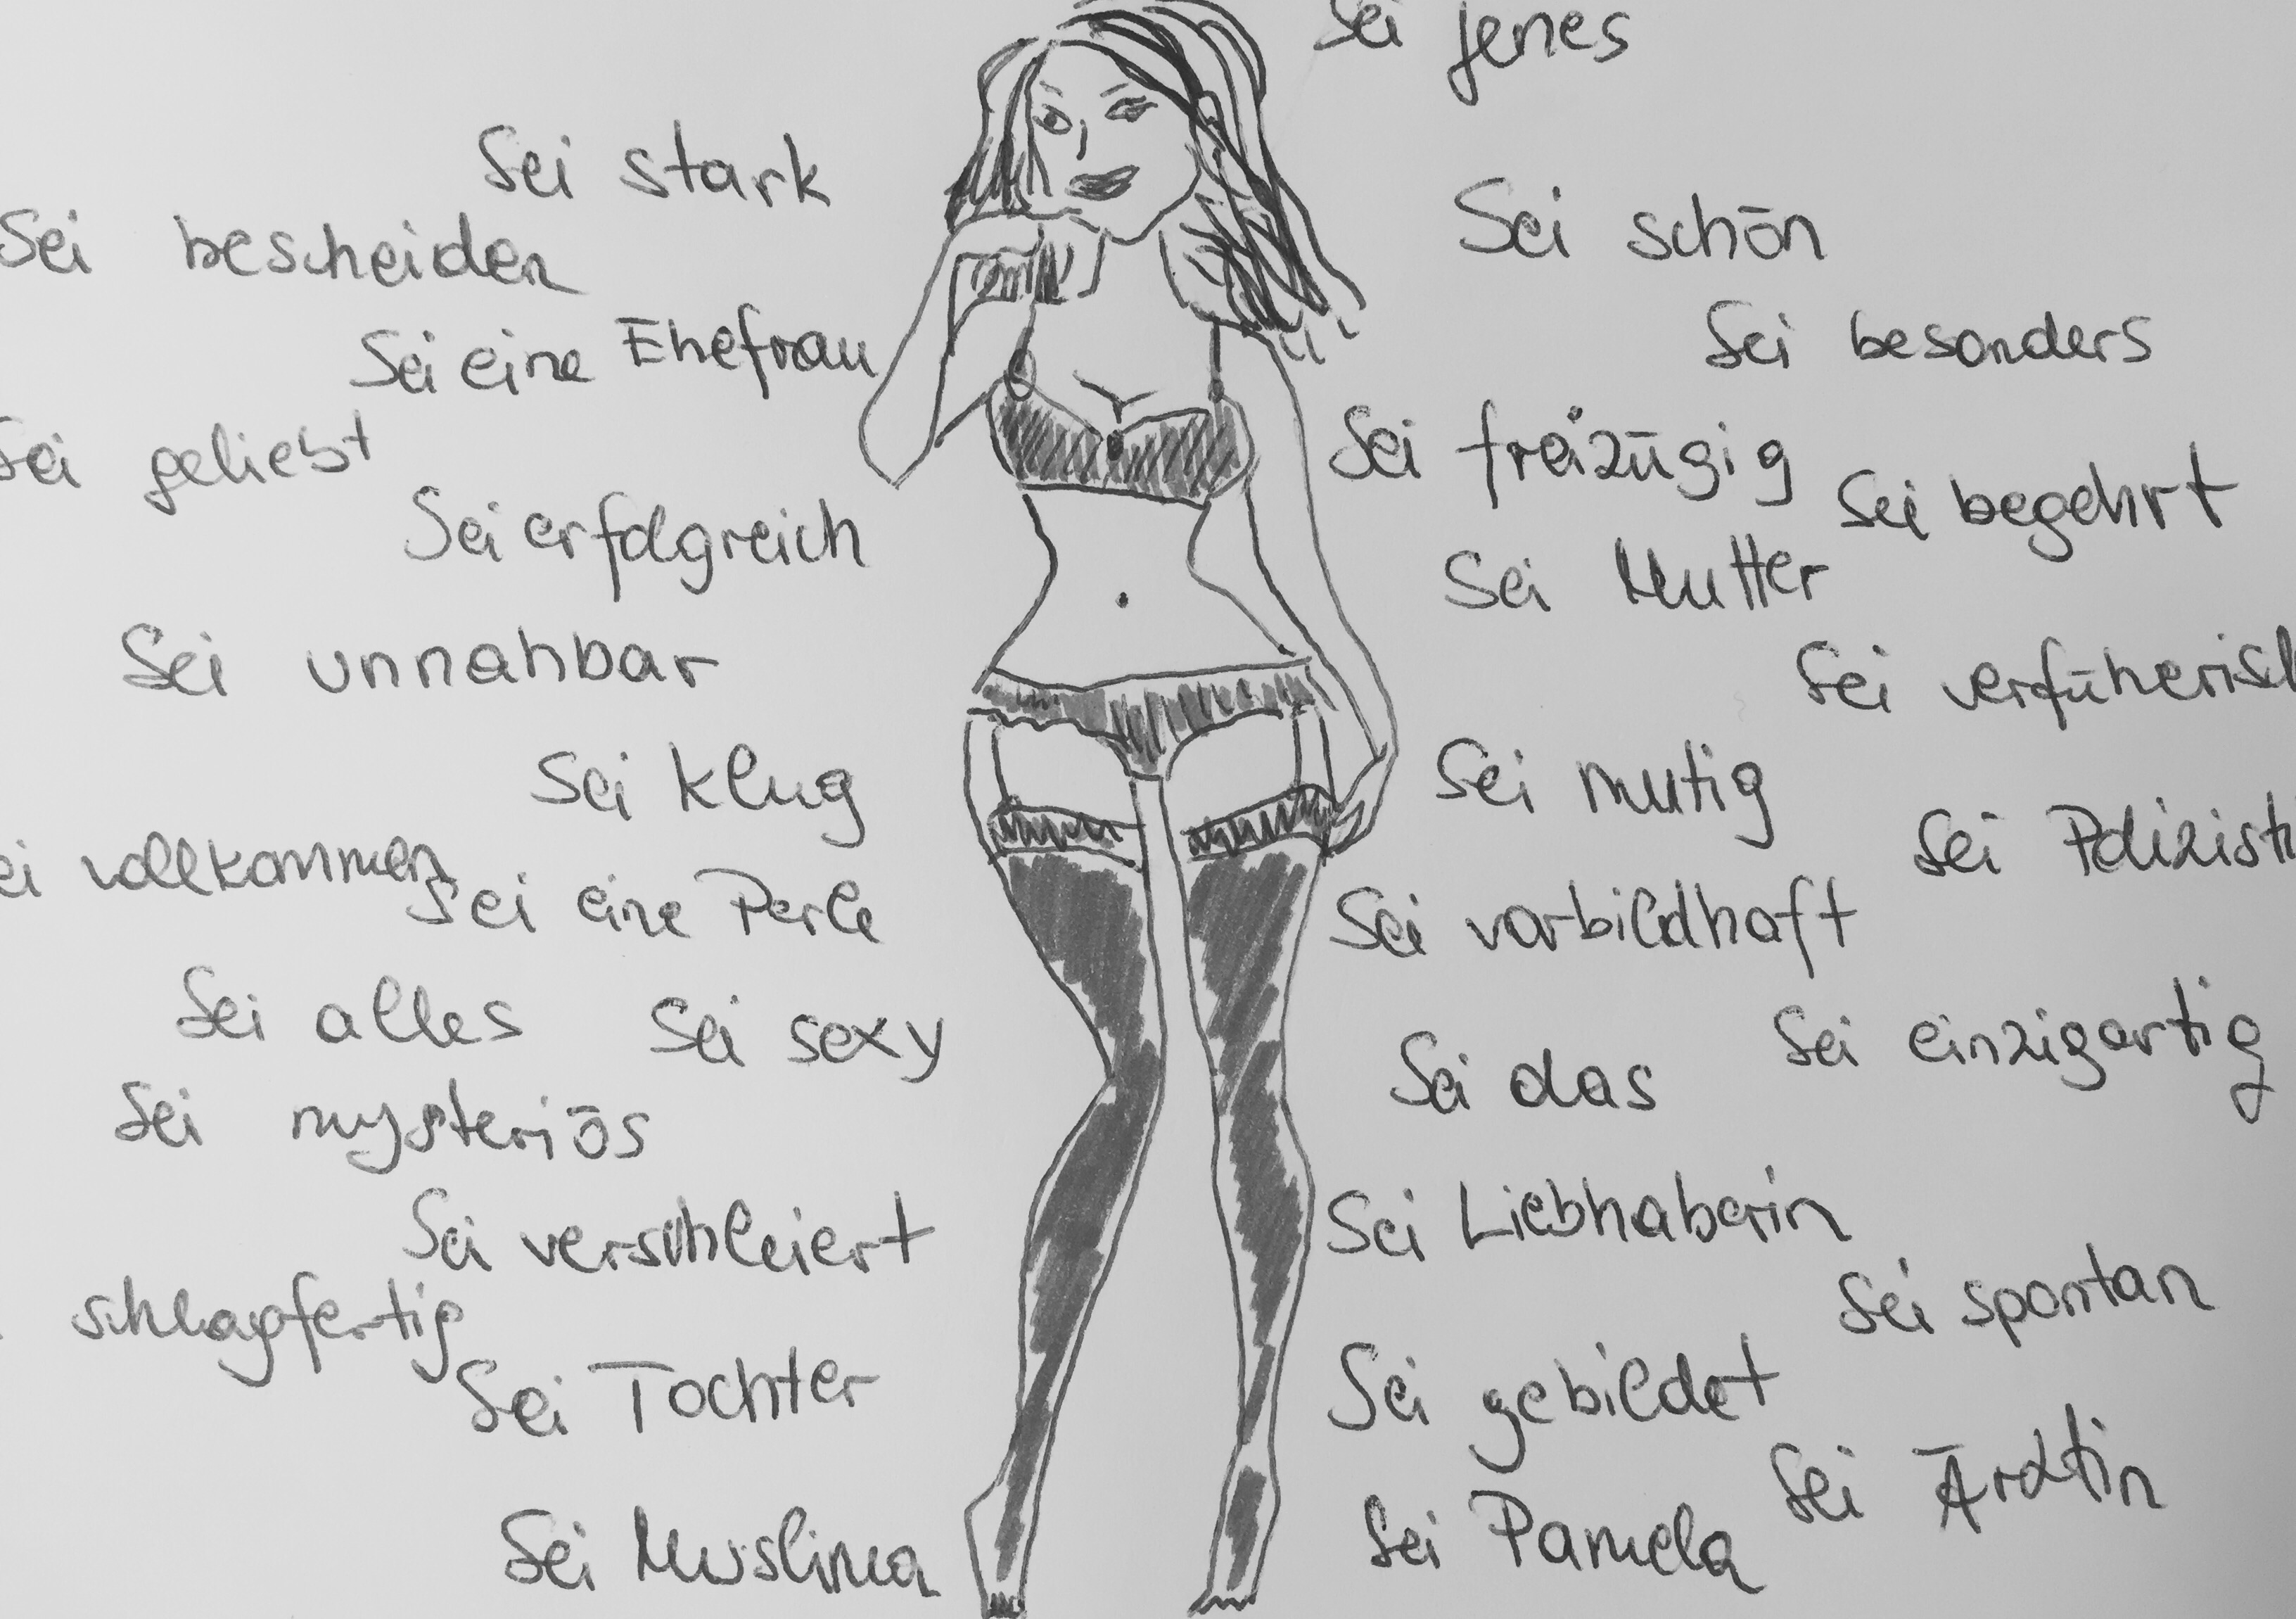 Sei jenes
Sei stark
Sei schön
Sei bescheiden
Sei besonders
Sei eine Ehefrau
Sei freizügig
Sei geliebt
Sei begehrt
Sei erfolgreich
Sei Mutter
Sei unnahbar
Sei verführerisch
Sei klug
Sei mutig
Sei Polizisti
ei vollkommen
Sei eine Perle
Sei vorbildhaft
Sei alles
Sei sexy
Sei einzigartig
Sei das
Sei mysteriös
Sei verschleiert
Sei Liebhaberin
schlagfertig
Sei spontan
Sei Tochter
Sei gebildet
Sei Ärztin
Sei Muslima
Sei Pamela